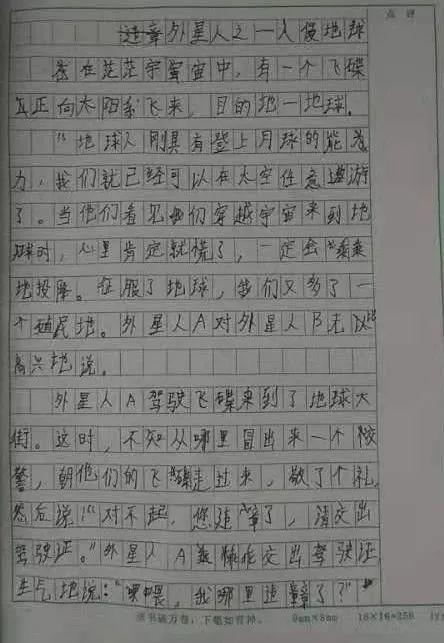 点 评
违章外星人之一入侵地球
在茫茫宇宙中,有一个飞碟
正向太阳系飞来,目的地一地球.
“地球人刚具有登上月球的能
力,我们就已经可以在太空任意遨游
了。当他们看见我们穿越宇宙来到地
球时,心里肯定就慌了,一定会乖乖
地投降。征服了地球,我们又多了一
个殖民地。外星人A对外星人B
高兴地说。
外星人A驾驶飞碟来到了地球大
街。这时,不知从哪里冒出来一个
警,朝他们的飞碟走过来,敬了个礼,
然后说:“对不起,您违章了,请交出
驾驶证。”外星人A 交出驾驶证
生气地说:“喂喂,我哪里违章了?”
读书破万卷,下笔如有神。 9mm×8mm 18×16=288